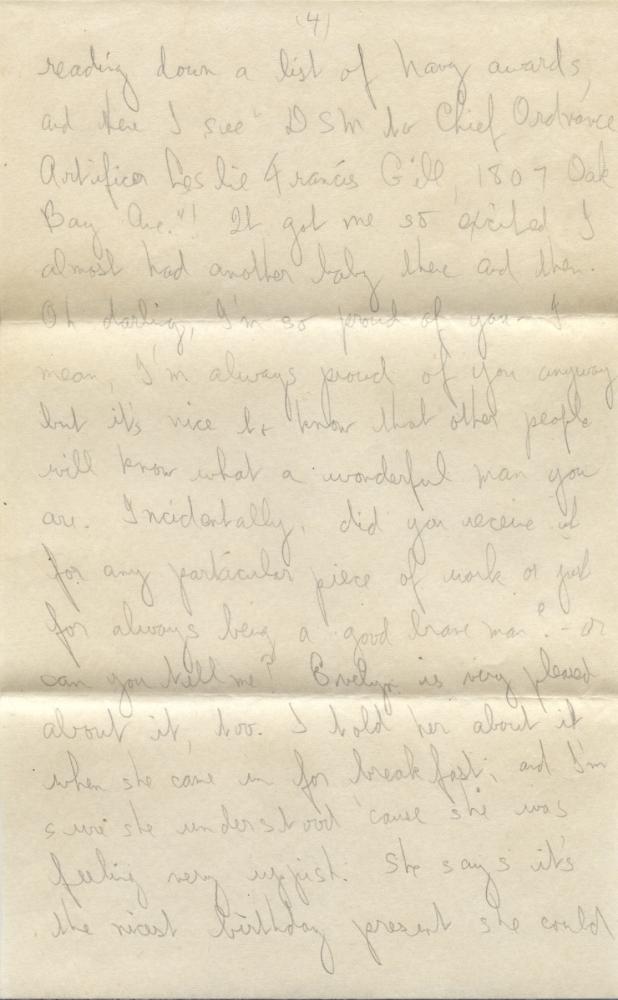 (4)
reading down a list of Navy awards,
and there I see "DSM to Chief Ordnance
Artificer Leslie Francis Gill, 1807 Oak
Bay Ave."! It got me so excited I
almost had another baby there and then.
Oh darling, I'm so proud of you - I
mean, I'm always proud of you anyway
but it's nice to know that other people
will know what a wonderful man you
are. Incidentally, did you receive it
for any particular piece of work or just
for always being a good brave man? - or
can you tell me? Evelyn is very pleased
about it, too. I told her about it
when she came in for breakfast, and I'm
sure she understood 'cause she was
feeling very uppish. She says it's
the nicest birthday present she could